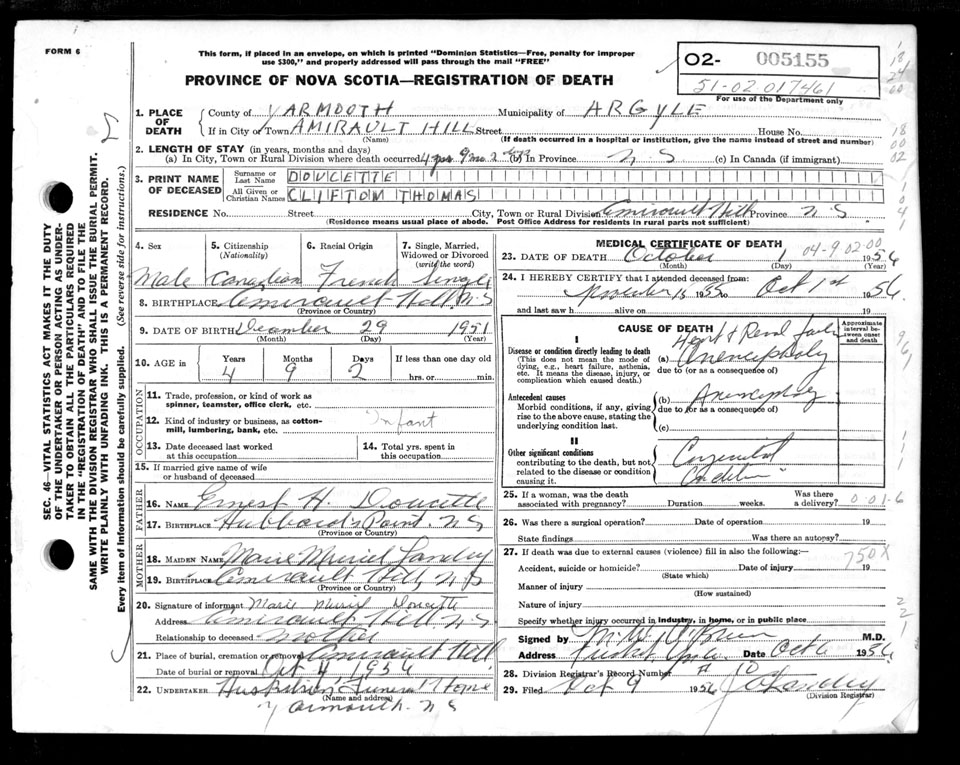 FORM 6
This form, if placed in an envelope, on which is printed "Dominion Statistics—Free, penalty for improper
use $300," and properly addressed will pass through the mail "FREE"
PROVINCE OF NOVA SCOTIA—REGISTRATION OF DEATH
O2- 005155
51-02-017461
For use of the Department only
SEC. 46—VITAL STATISTICS ACT MAKES IT THE DUTY
OF THE UNDERTAKER OR PERSON ACTING AS UNDER-
TAKER TO OBTAIN ALL THE PARTICULARS REQUIRED
IN THE "REGISTRATION OF DEATH" AND TO FILE THE
SAME WITH THE DIVISION REGISTRAR WHO SHALL ISSUE THE BURIAL PERMIT.
WRITE PLAINLY WITH UNFADING INK. THIS IS A PERMANENT RECORD.
Every item of information should be carefully supplied. (See reverse side for instructions.)
1. PLACE OF DEATH
County of YARMOOTH Municipality of ARGYLE
If in City or Town AMIRAULT HILL Street House No.
(Name) (If death occurred in a hospital or institution, give the name instead of street and number)
2. LENGTH OF STAY (in years, months and days)
(a) In City, Town or Rural Division where death occurred 4 yrs 9 mo 2 days (b) In Province N. S (c) In Canada (if immigrant)
3. PRINT NAME OF DECEASED
Surname or Last Name DOUCETTE
All Given or Christian Names CLIFTOM THOMAS
RESIDENCE No. Street City, Town or Rural Division Amirault Hill Province N S
(Residence means usual place of abode. Post Office Address for residents in rural parts not sufficient)
4. Sex 5. Citizenship (Nationality) 6. Racial Origin 7. Single, Married, Widowed or Divorced (write the word)
Male Canadian French Single
8. BIRTHPLACE Amirault Hill N S
(Province or Country)
9. DATE OF BIRTH December 29 1951
(Month) (Day) (Year)
10. AGE in Years Months Days If less than one day old
4 9 2 hrs. or min.
OCCUPATION
11. Trade, profession, or kind of work as
spinner, teamster, office clerk, etc.
12. Kind of industry or business, as cotton-
mill, lumbering, bank, etc. Infant
13. Date deceased last worked
at this occupation
14. Total yrs. spent in
this occupation
15. If married give name of wife
or husband of deceased
FATHER
16. NAME Ernest H. Doucette
17. BIRTHPLACE Hubbard's Point. N S
(Province or Country)
MOTHER
18. MAIDEN NAME Marie Muriel Landry
19. BIRTHPLACE Amirault Hill N S
(Province or Country)
20. Signature of informant Marie Muriel Doucette
Address Amirault Hill N S
Relationship to deceased Mother
21. Place of burial, cremation or removal Amirault Hill
Date of burial or removal Oct 4 1956
22. UNDERTAKER Funeral Home
(Name and address)
Yarmouth N S
MEDICAL CERTIFICATE OF DEATH
04-9 02-00
23. DATE OF DEATH October 1 1956
(Month) (Day) (Year)
24. I HEREBY CERTIFY that I attended deceased from:
November 15 1955 to Oct 1st 1956
and last saw h alive on 19
CAUSE OF DEATH
Approximate interval between onset and death
I
Disease or condition directly leading to death
(This does not mean the mode of
dying, e.g., heart failure, asthenia,
etc. It means the disease, injury, or
complication which caused death.)
(a) Heart & Renal failure
Anencephaly
due to (or as a consequence of)
Antecedent causes
Morbid conditions, if any, giving
rise to the above cause, stating the
underlying condition last.
(b) Anencephaly
due to (or as a consequence of)
(c)
II
Other significant conditions
contributing to the death, but not
related to the disease or condition
causing it.
Congenital
Condition
25. If a woman, was the death
associated with pregnancy? Duration weeks. Was there a delivery?
0-01-6
26. Was there a surgical operation? Date of operation 19
State findings Was there an autopsy?
27. If death was due to external causes (violence) fill in also the following:—
750X
Accident, suicide or homicide? Date of injury 19
(State which)
Manner of injury
(How sustained)
Nature of injury
Specify whether injury occurred in industry, in home, or in public place
Signed by O'Brien M.D.
Address Date Oct 6 1956
28. Division Registrar's Record Number # 10
29. Filed Oct 9 1956 Landry
(Division Registrar)